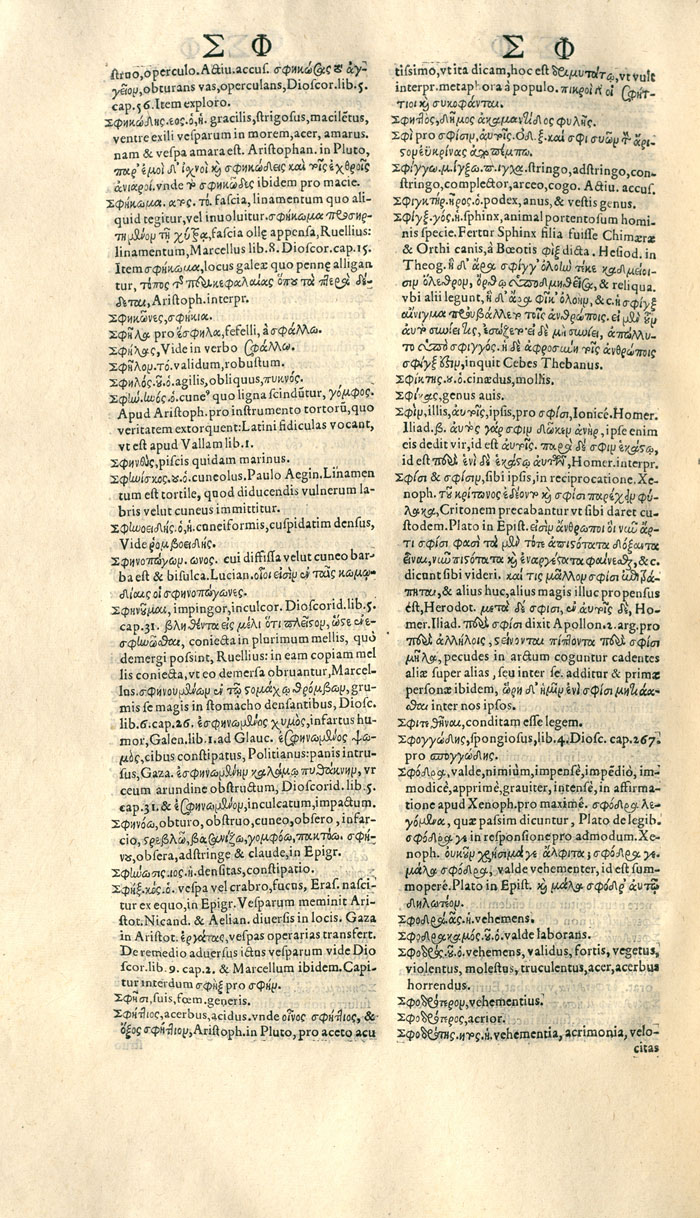 Σ Φ
struo, operculo. Actiu. accus. σφηκώσας τὸ ἀγ-
γεῖον, obturans vas, operculans, Dioscor. lib. 5.
cap. 56. Item exploro.
Σφηκώδης. εος. ὁ, ἡ. gracilis, strigosus, macilētus,
ventre exili vesparum in morem, acer, amarus.
nam & vespa amara est. Aristophan. in Pluto,
παρ' ἐμοὶ δ' ἰσχνοὶ καὶ σφηκώδεις καὶ τοῖς ἐχθροῖς
ἀνιαροί. vnde τὸ σφηκῶδες ibidem pro macie.
Σφήκωμα. ατος. τό. fascia, linamentum quo ali-
quid tegitur, vel inuoluitur. σφήκωμα
τῇ χύτρᾳ, fascia ollę appensa, Ruellius:
linamentum, Marcellus lib. 8. Dioscor. cap. 15.
Item σφήκωμα, locus galeæ quo pennę alligan
tur, τόπος τῆς περικεφαλαίας ὅπου τὰ πτερὰ δέ-
δεται, Aristoph. interpr.
Σφηκῶνες, σφήκια.
Σφῆλα pro ἔσφηλα, fefelli, à σφάλλω.
Σφήλας, Vide in verbo σφάλλω.
Σφῆλον. τό. validum, robustum.
Σφηλός. οῦ. ὁ. agilis, obliquus, πυκνός.
Σφήν. ηνός. ὁ. cune9 quo ligna scindūtur, γόμφος.
Apud Aristoph. pro instrumento tortorū, quo
veritatem extorquent: Latini fidiculas vocant,
vt est apud Vallam lib. 1.
piscis quidam marinus.
Σφηνίσκος. ου. ὁ. cuneolus. Paulo Aegin. Linamen
tum est tortile, quod diducendis vulnerum la-
bris velut cuneus immittitur.
Σφηνοειδής. ὁ, ἡ. cuneiformis, cuspidatim densus,
Vide ῥομβοειδής.
Σφηνοπώγων. ωνος. cui diffissa velut cuneo bar-
ba est & bisulca. Lucian. οἷοι εἰσὶν ἐν ταῖς κωμῳ-
δίαις οἱ σφηνοπώγωνες.
Σφηνοῦμαι, impingor, inculcor. Dioscorid. lib. 5.
cap. 31. βληθέντα εἰς μέλι ὅτι πλεῖστον, ὥστε ἐνε-
σφηνῶσθαι, coniecta in plurimum mellis, quò
demergi possint, Ruellius: in eam copiam mel
lis coniecta, vt eo demersa obruantur, Marcel-
lus. σφηνουμένων ἐν τῷ στομάχῳ θρόμβων, gru-
mis se magis in stomacho densantibus, Diosc.
lib. 6. cap. 26. ἐσφηνωμένος χυμός, infartus hu-
mor, Galen. lib. 1. ad Glauc. ἐσφηνωμένος ψω-
μός, cibus constipatus, Politianus: panis intru-
sus, Gaza. ἐσφηνωμένην καλάμῳ vr
ceum arundine obstructum, Dioscorid. lib. 5.
cap. 31. & ἐσφηνωμένον, inculcatum, impactum.
Σφηνόω, obturo, obstruo, cuneo, obsero, infar-
cio, στρεβλῶ, βασανίζω, γομφόω, πακτόω. σφή-
νου, obsera, adstringe & claude, in Epigr.
Σφήνωσις. ιος. ἡ. densitas, constipatio.
Σφήξ. κός. ὁ. vespa vel crabro, fucus, Eras. nasci-
tur ex equo, in Epigr. Vesparum meminit Ari-
stot. Nicand. & Aelian. diuersis in locis. Gaza
in Aristot. ἐργάτας, vespas operarias transfert.
De remedio aduersus ictus vesparum vide Dio
scor. lib. 9. cap. 2. & Marcellum ibidem. Capi-
tur interdum σφήξ pro σφήν.
Σφῇσι, suis, fœm. generis.
Σφήττιος, acerbus, acidus. vnde οἶνος σφήττιος, &
ὄξος σφήττιον, Aristoph. in Pluto, pro aceto acu
Σ Φ
tissimo, vt ita dicam, hoc est δριμυτάτῳ, vt vult
interpr. metaphora à populo. πικροὶ οἱ σφήτ-
τιοι καὶ συκοφάνται.
δῆμος ἀκαμαντίδος φυλῆς.
Σφὶ pro σφίσιν, αὐτοῖς. Οδ. ξ. καὶ σφι συῶν τὸν ἄρι-
στον
Σφίγγω. μ. ίγξω. π. ιγχα. stringo, adstringo, con-
stringo, complector, arceo, cogo. Actiu. accus.
Σφιγκτήρ. ῆρος. ὁ. podex, anus, & vestis genus.
Σφίγξ. γός. ἡ. sphinx, animal portentosum homi-
nis specie. Fertur Sphinx filia fuisse Chimæræ
& Orthi canis, à Bœotis φὶξ dicta. Hesiod. in
Theog. ἡ δ' ἄρα σφίγγ' ὀλοὴν τέκε καδμείοι-
σιν ὄλεθρον, ὄρθῳ ὑποδμηθεῖσα, & reliqua.
vbi alii legunt, ἡ δ' ἄρα φῖκ' ὀλοὴν, &c. ἡ σφὶγξ
αἴνιγμα προύβαλλεν τοῖς ἀνθρώποις. εἰ μὲν οὖν
αὐτὸ συνίει τις, ἐσώζετο· εἰ δὲ μὴ συνίει, ἀπώλλυ-
το ὑπὸ σφιγγός. ἡ δὲ ἀφροσύνη τοῖς ἀνθρώποις
σφίγξ ἐστιν, inquit Cebes Thebanus.
Σφίγκτης. ου. ὁ. cinædus, mollis.
Σφίκας, genus auis.
Σφίν, illis, αὐτοῖς, ipsis, pro σφίσι, Ionicè. Homer.
Iliad. β. αὐτός γάρ σφιν δῶκεν ἀνήρ, ipse enim
eis dedit vir, id est αὐτοῖς. παρὰ δέ σφιν ἑκάστῳ,
id est παρὰ ἑνὶ δὲ ἑκάστῳ αὐτῶν, Homer. interpr.
Σφίσι & σφίσιν, sibi ipsis, in reciprocatione. Xe-
noph. τοῦ κρίτωνος ἐδέοντο καὶ σφίσι παρέχειν φύ-
λακα, Critonem precabantur vt sibi daret cu-
stodem. Plato in Epist. εἰσὶν ἄνθρωποι οἳ νῦν ἄρ-
τι σφίσι φασὶ τὰ μὲν τότε ἀπιστότατα δόξαντα
εἶναι, νῦν πιστότατα καὶ ἐναργέστατα φαίνεσθαι, &c.
dicunt sibi videri. καί τις μᾶλλον σφίσι
& alius huc, alius magis illuc propensus
est, Herodot. μετὰ δέ σφισι, ἐν αὐτοῖς δέ, Ho-
mer. Iliad. παρὰ σφίσι dixit Apollon. 2. arg. pro
παρ' ἀλλήλοις, στείνονται πίπτοντα περὶ σφίσι
μῆλα, pecudes in arctum coguntur cadentes
aliæ super alias, seu inter se. additur & primæ
personæ ibidem, ὥρη δ' ἡμῖν ἐνὶ σφίσι μητιάα-
σθαι inter nos ipsos.
conditam esse legem.
Σφογγώδης, spongiosus, lib. 4. Diosc. cap. 267.
pro σπογγώδης.
Σφόδρα, valde, nimium, impensè, impēdiò, im-
modicè, apprimè, grauiter, intensè, in affirma-
tione apud Xenoph. pro maximè. σφόδρα λε-
γόμενα, quæ passim dicuntur, Plato de legib.
σφόδρα γε in responsione pro admodum. Xe-
noph. οὐκοῦν χρήσιμά γε ἄλφιτα; σφόδρα γε.
μάλα σφόδρα, valde vehementer, id est sum-
moperè. Plato in Epist. καὶ μάλα σφόδρ' αὐτῷ
δηλωτέον.
Σφοδρά. ᾶς. ἡ. vehemens.
Σφοδρακαμός. οῦ. ὁ. valde laborans.
Σφοδρός. οῦ. ὁ. vehemens, validus, fortis, vegetus,
violentus, molestus, truculentus, acer, acerbus
horrendus.
Σφοδρότερον, vehementius.
Σφοδρότερος, acrior.
Σφοδρότης. ητος. ἡ. vehementia, acrimonia, velo-
citas